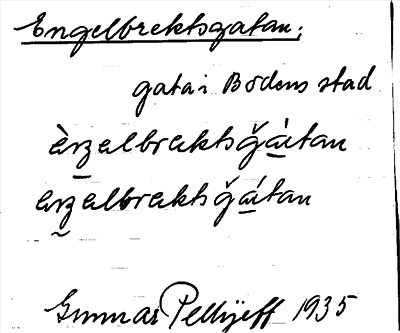 Engelbrektsgatan:
gata i Bodens stad
àꞃzelbrektsğàtan
aꞃzelbrektsğátan
Gunnar Pellijeff 1935